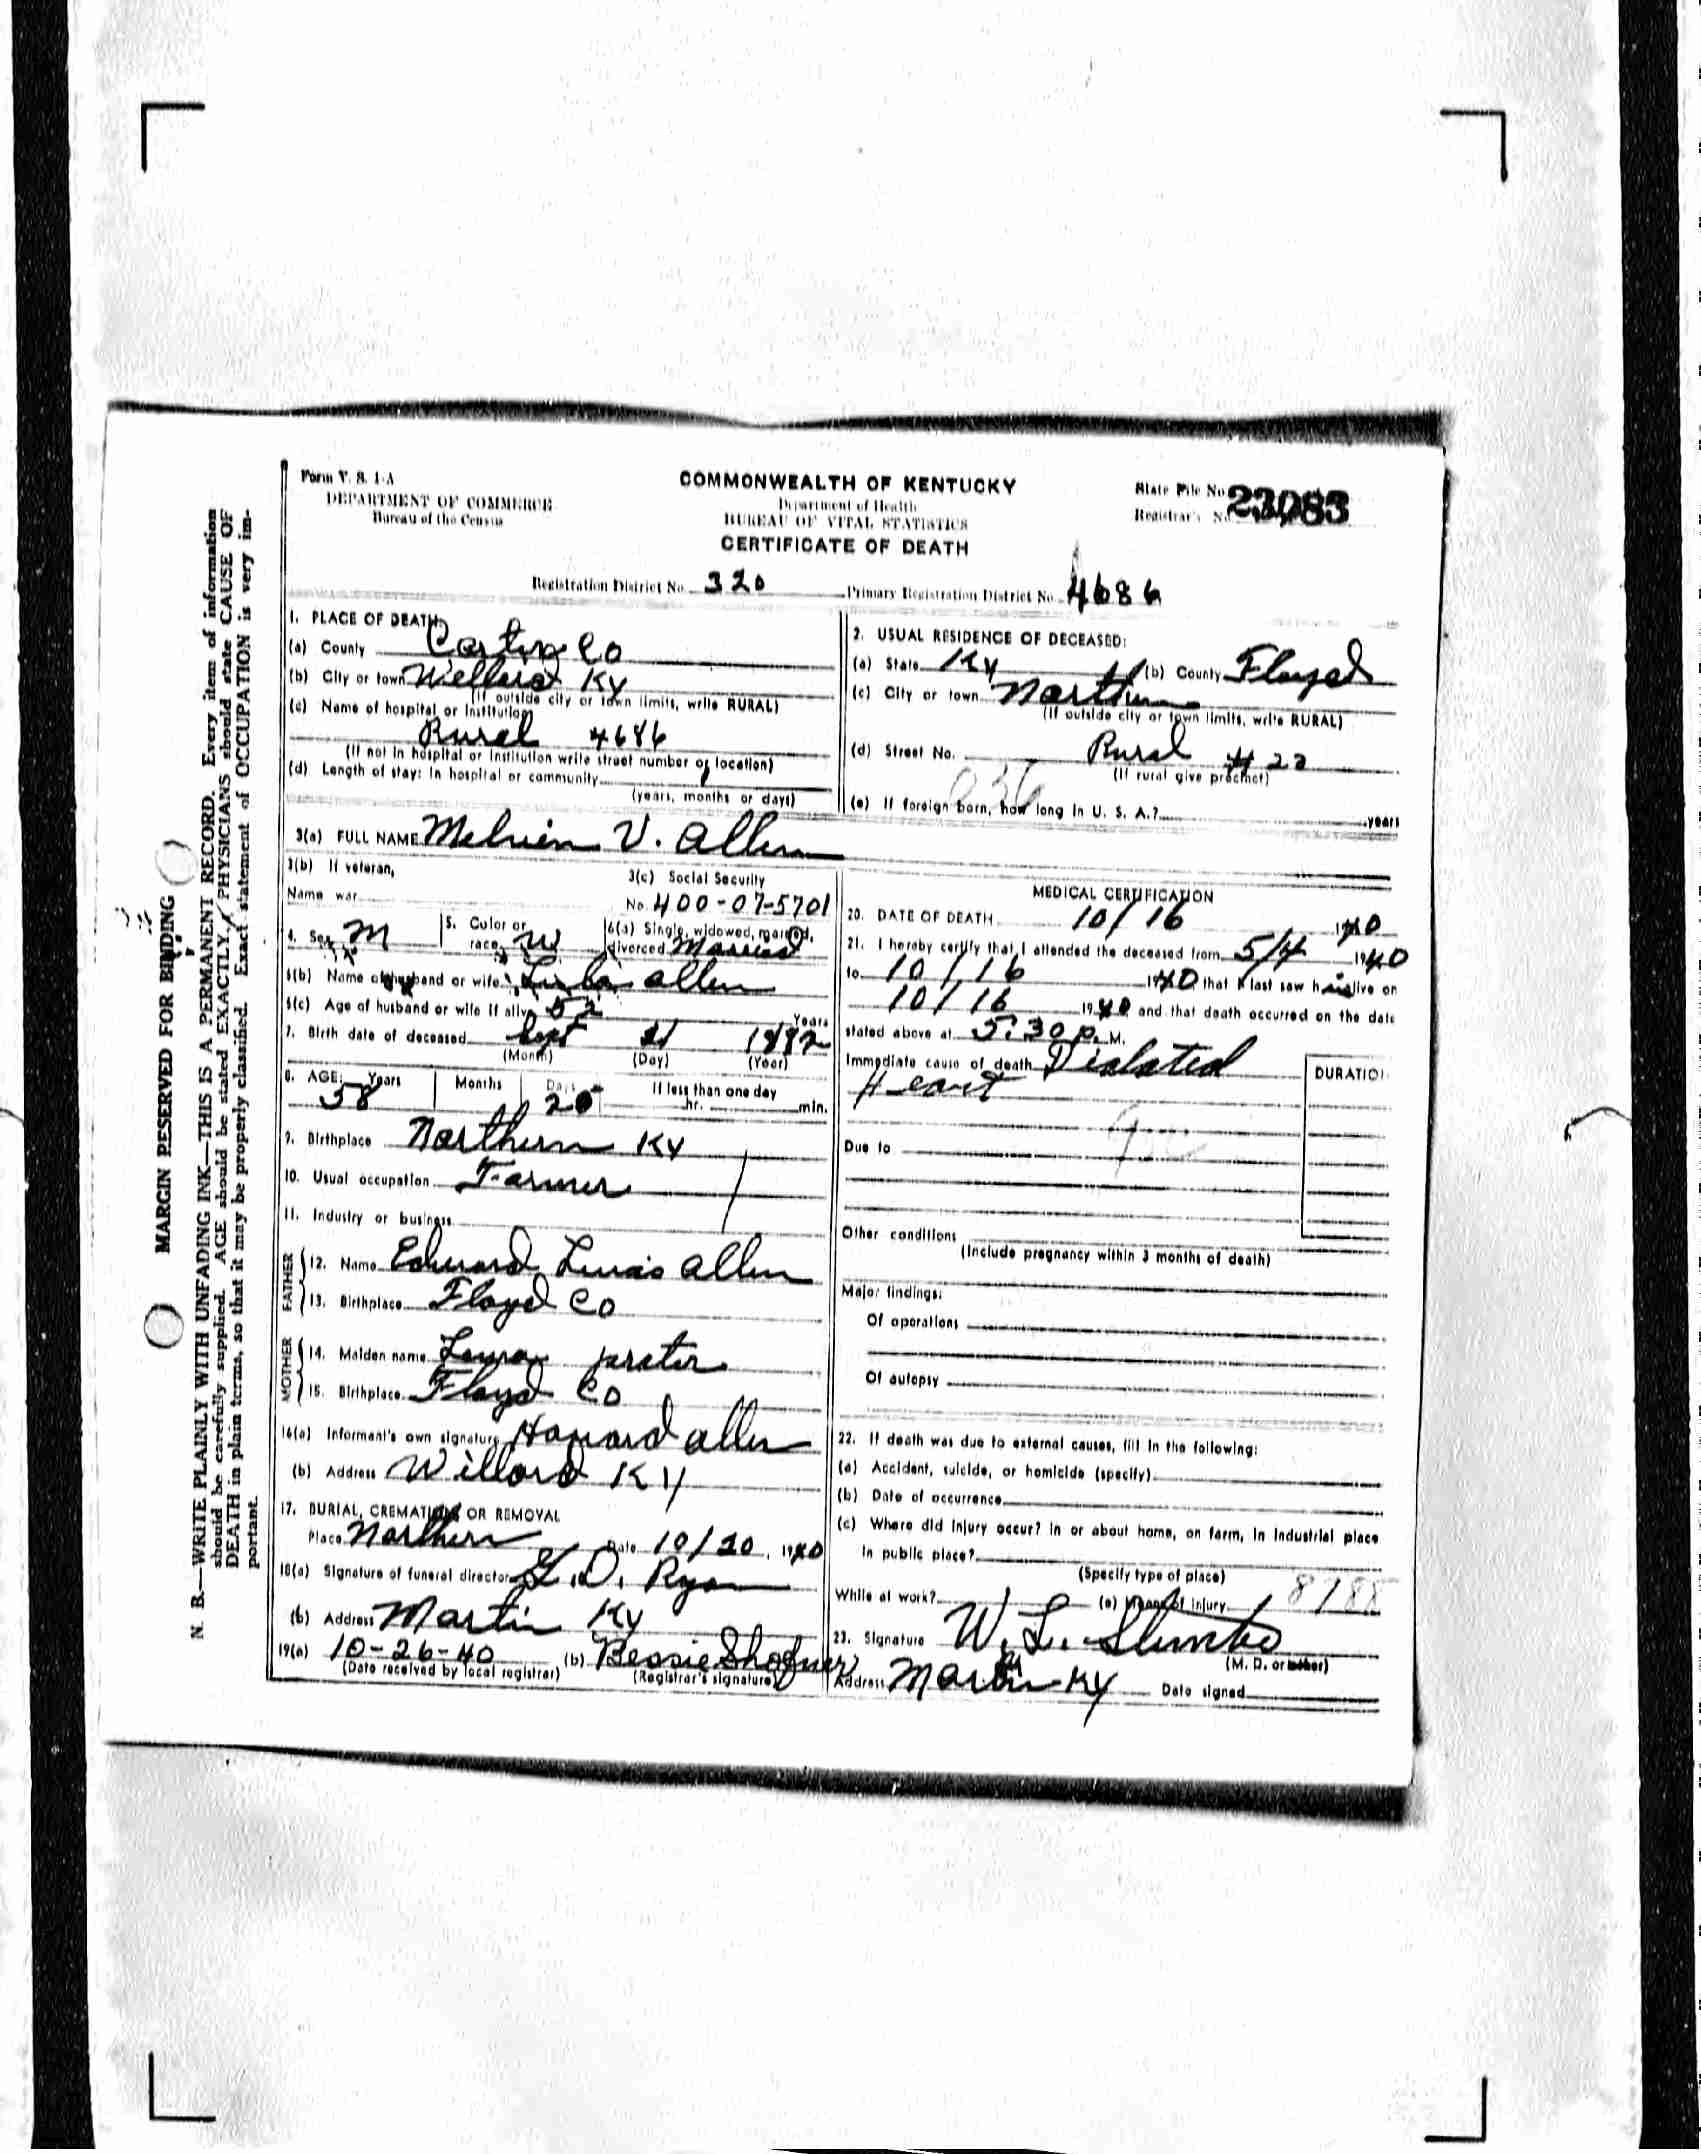 Form V. S. 1-A
DEPARTMENT OF COMMERCE
Bureau of the Census
COMMONWEALTH OF KENTUCKY
Department of Health
BUREAU OF VITAL STATISTICS
CERTIFICATE OF DEATH
State File No. 23083
Registrar's No.
Registration District No. 320 Primary Registration District No. 4686
1. PLACE OF DEATH:
(a) County Carter Co
(b) City or town Willard Ky
(If outside city or town limits, write RURAL)
(c) Name of hospital or institution
Rural 4686
(If not in hospital or institution write street number or location)
(d) Length of stay: In hospital or community
(years, months or days)
2. USUAL RESIDENCE OF DECEASED:
(a) State Ky (b) County Floyd
(c) City or town Northern
(If outside city or town limits, write RURAL)
(d) Street No. Rural # 22
(If rural give precinct)
(e) If foreign born, how long in U. S. A.? years
3(a) FULL NAME Melvin V. Allen
3(b) If veteran,
Name war
3(c) Social Security
No. 400-07-5701
4. Sex M
5. Color or race W
6(a) Single, widowed, married, divorced Married
6(b) Name of husband or wife allen
6(c) Age of husband or wife if alive 52 Years
7. Birth date of deceased Sept 21 1882
(Month) (Day) (Year)
8. AGE: Years Months Days If less than one day
58 20 hr. min.
9. Birthplace Northern Ky
10. Usual occupation Farmer
11. Industry or business
FATHER
12. Name Edward Lewis Allen
13. Birthplace Floyd Co
MOTHER
14. Maiden name prater
15. Birthplace Floyd Co
16(a) Informant's own signature Howard allen
(b) Address Willard Ky
17. BURIAL, CREMATION OR REMOVAL
Place Northern Date 10/20, 1940
18(a) Signature of funeral director G. D. Ryan
(b) Address Martin Ky
19(a) 10-26-40 (b) Bessie Shofner
(Date received by local registrar) (Registrar's signature)
MEDICAL CERTIFICATION
20. DATE OF DEATH 10/16 1940
21. I hereby certify that I attended the deceased from 5/4 1940
to 10/16 1940 that I last saw h alive on
10/16 1940 and that death occurred on the date
stated above at 5:30 p. M.
Immediate cause of death Dialated
Heart
DURATION
Due to
Other conditions
(Include pregnancy within 3 months of death)
Major findings:
Of operations
Of autopsy
22. If death was due to external causes, fill in the following:
(a) Accident, suicide, or homicide (specify)
(b) Date of occurrence
(c) Where did injury occur? In or about home, on farm, in industrial place
in public place?
(Specify type of place)
While at work? (e) Means of injury
23. Signature W. L. Stumbo
(M. D. or other)
Address Martin Ky Date signed
MARGIN RESERVED FOR BINDING
N. B.—WRITE PLAINLY WITH UNFADING INK—THIS IS A PERMANENT RECORD. Every item of information
should be carefully supplied. AGE should be stated EXACTLY. PHYSICIANS should state CAUSE OF
DEATH in plain terms, so that it may be properly classified. Exact statement of OCCUPATION is very im-
portant.